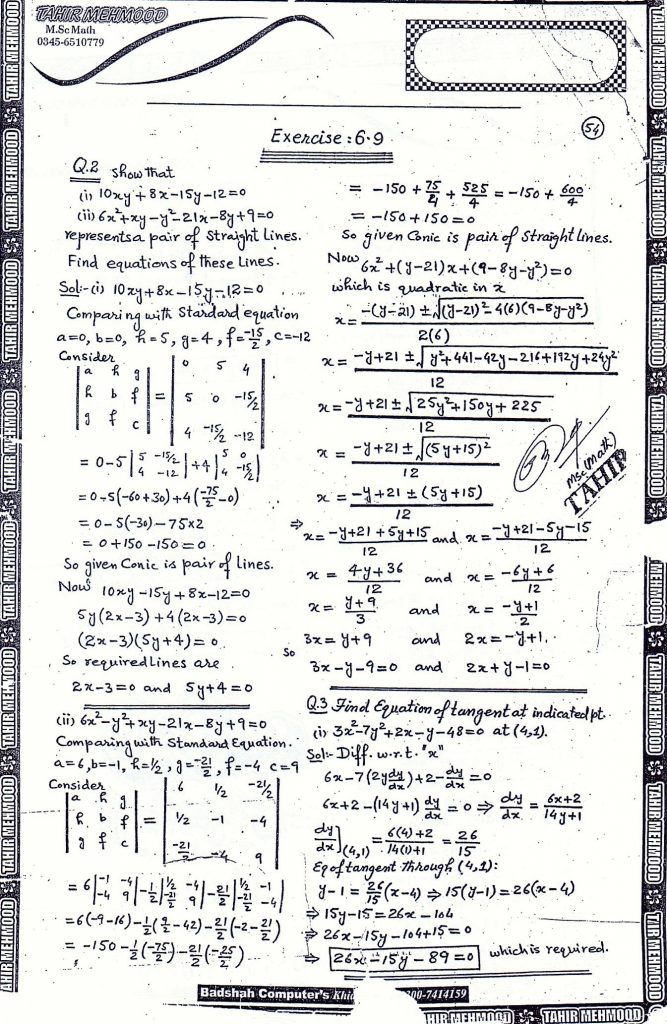 TAHIR MEHMOOD
M.Sc Math
0345-6510779
54
Exercise : 6.9
Q.2 Show that
(i) 10xy+8x-15y-12=0
(ii) 6x²+xy-y²-21x-8y+9=0
represents a pair of Straight Lines.
Find equations of these Lines.
Sol:-(i) 10xy+8x-15y-12=0
Comparing with Stardard equation
a=0, b=0, h=5, g=4, f=-15/2, c=-12
Consider
|a h g| |0 5 4|
|h b f| = |5 0 -15/2|
|g f c| |4 -15/2 -12|
= 0-5|5 -15/2; 4 -12|+4|5 0; 4 -15/2|
= 0-5(-60+30)+4(-75/2-0)
= 0-5(-30)-75×2
= 0+150-150=0
So given Conic is pair of lines.
Now 10xy-15y+8x-12=0
5y(2x-3)+4(2x-3)=0
(2x-3)(5y+4)=0
So required Lines are
2x-3=0 and 5y+4=0
(ii) 6x²-y²+xy-21x-8y+9=0
Comparing with Standard Equation.
a=6, b=-1, h=1/2, g=-21/2, f=-4 c=9
Consider
|a h g| |6 1/2 -21/2|
|h b f| = |1/2 -1 -4|
|g f c| |-21/2 -4 9|
= 6|-1 -4; -4 9|-1/2|1/2 -4; -21/2 9|-21/2|1/2 -1; -21/2 -4|
= 6(-9-16)-1/2(9/2-42)-21/2(-2-21/2)
= -150-1/2(-75/2)-21/2(-25/2)
= -150+75/4+525/4=-150+600/4
= -150+150=0
So given Conic is pair of Straight Lines.
Now 6x²+(y-21)x+(9-8y-y²)=0
which is quadratic in x
x= -(y-21)±√(y-21)²-4(6)(9-8y-y²) / 2(6)
x= -y+21±√y²+441-42y-216+192y+24y² / 12
x= -y+21±√25y²+150y+225 / 12
x= -y+21±√(5y+15)² / 12
x= -y+21±(5y+15) / 12
⇒ x= -y+21+5y+15 / 12 and x= -y+21-5y-15 / 12
x= 4y+36 / 12 and x= -6y+6 / 12
x= y+9 / 3 and x= -y+1 / 2
3x=y+9 and 2x=-y+1.
So 3x-y-9=0 and 2x+y-1=0
Msc (Math)
TAHIR
Q.3 Find Equation of tangent at indicated pt.
(i) 3x²-7y²+2x-y-48=0 at (4,1).
Sol:- Diff. w.r.t. "x"
6x-7(2y dy/dx)+2-dy/dx=0
6x+2-(14y+1) dy/dx=0 ⇒ dy/dx= 6x+2 / 14y+1
dy/dx](4,1)= 6(4)+2 / 14(1)+1 = 26/15
Eq of tangent through (4,1):
y-1= 26/15(x-4) ⇒ 15(y-1)=26(x-4)
⇒ 15y-15=26x-104
⇒ 26x-15y-104+15=0
⇒ 26x-15y-89=0 which is required.
Badshah Computer's
00-7414159
TAHIR MEHMOOD